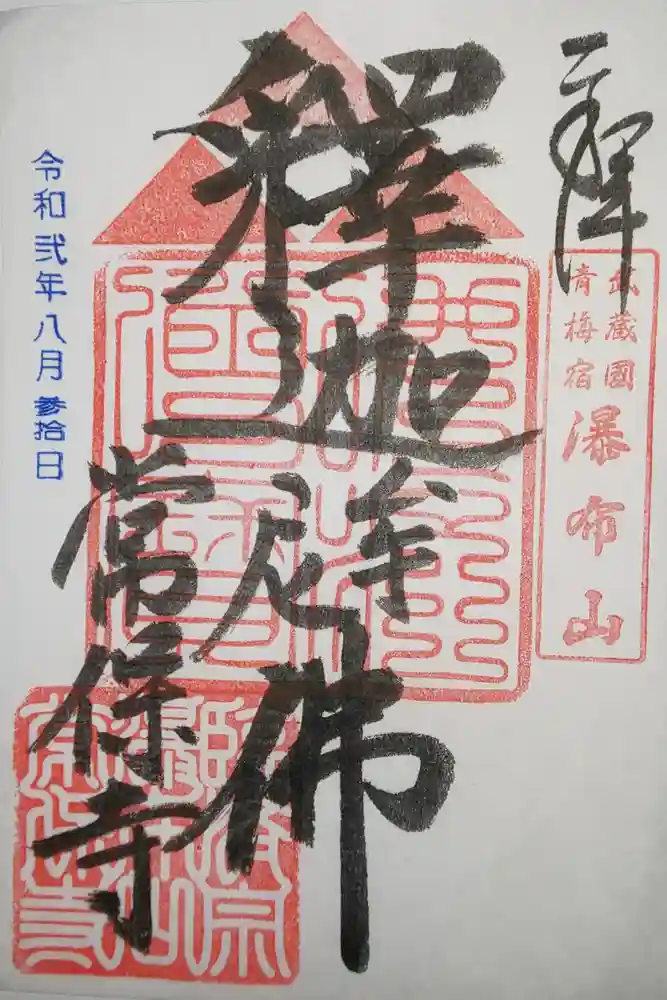 武蔵國
青梅宿
瀑布山
釋迦牟尼佛
常保寺
令和弐年八月参拾日